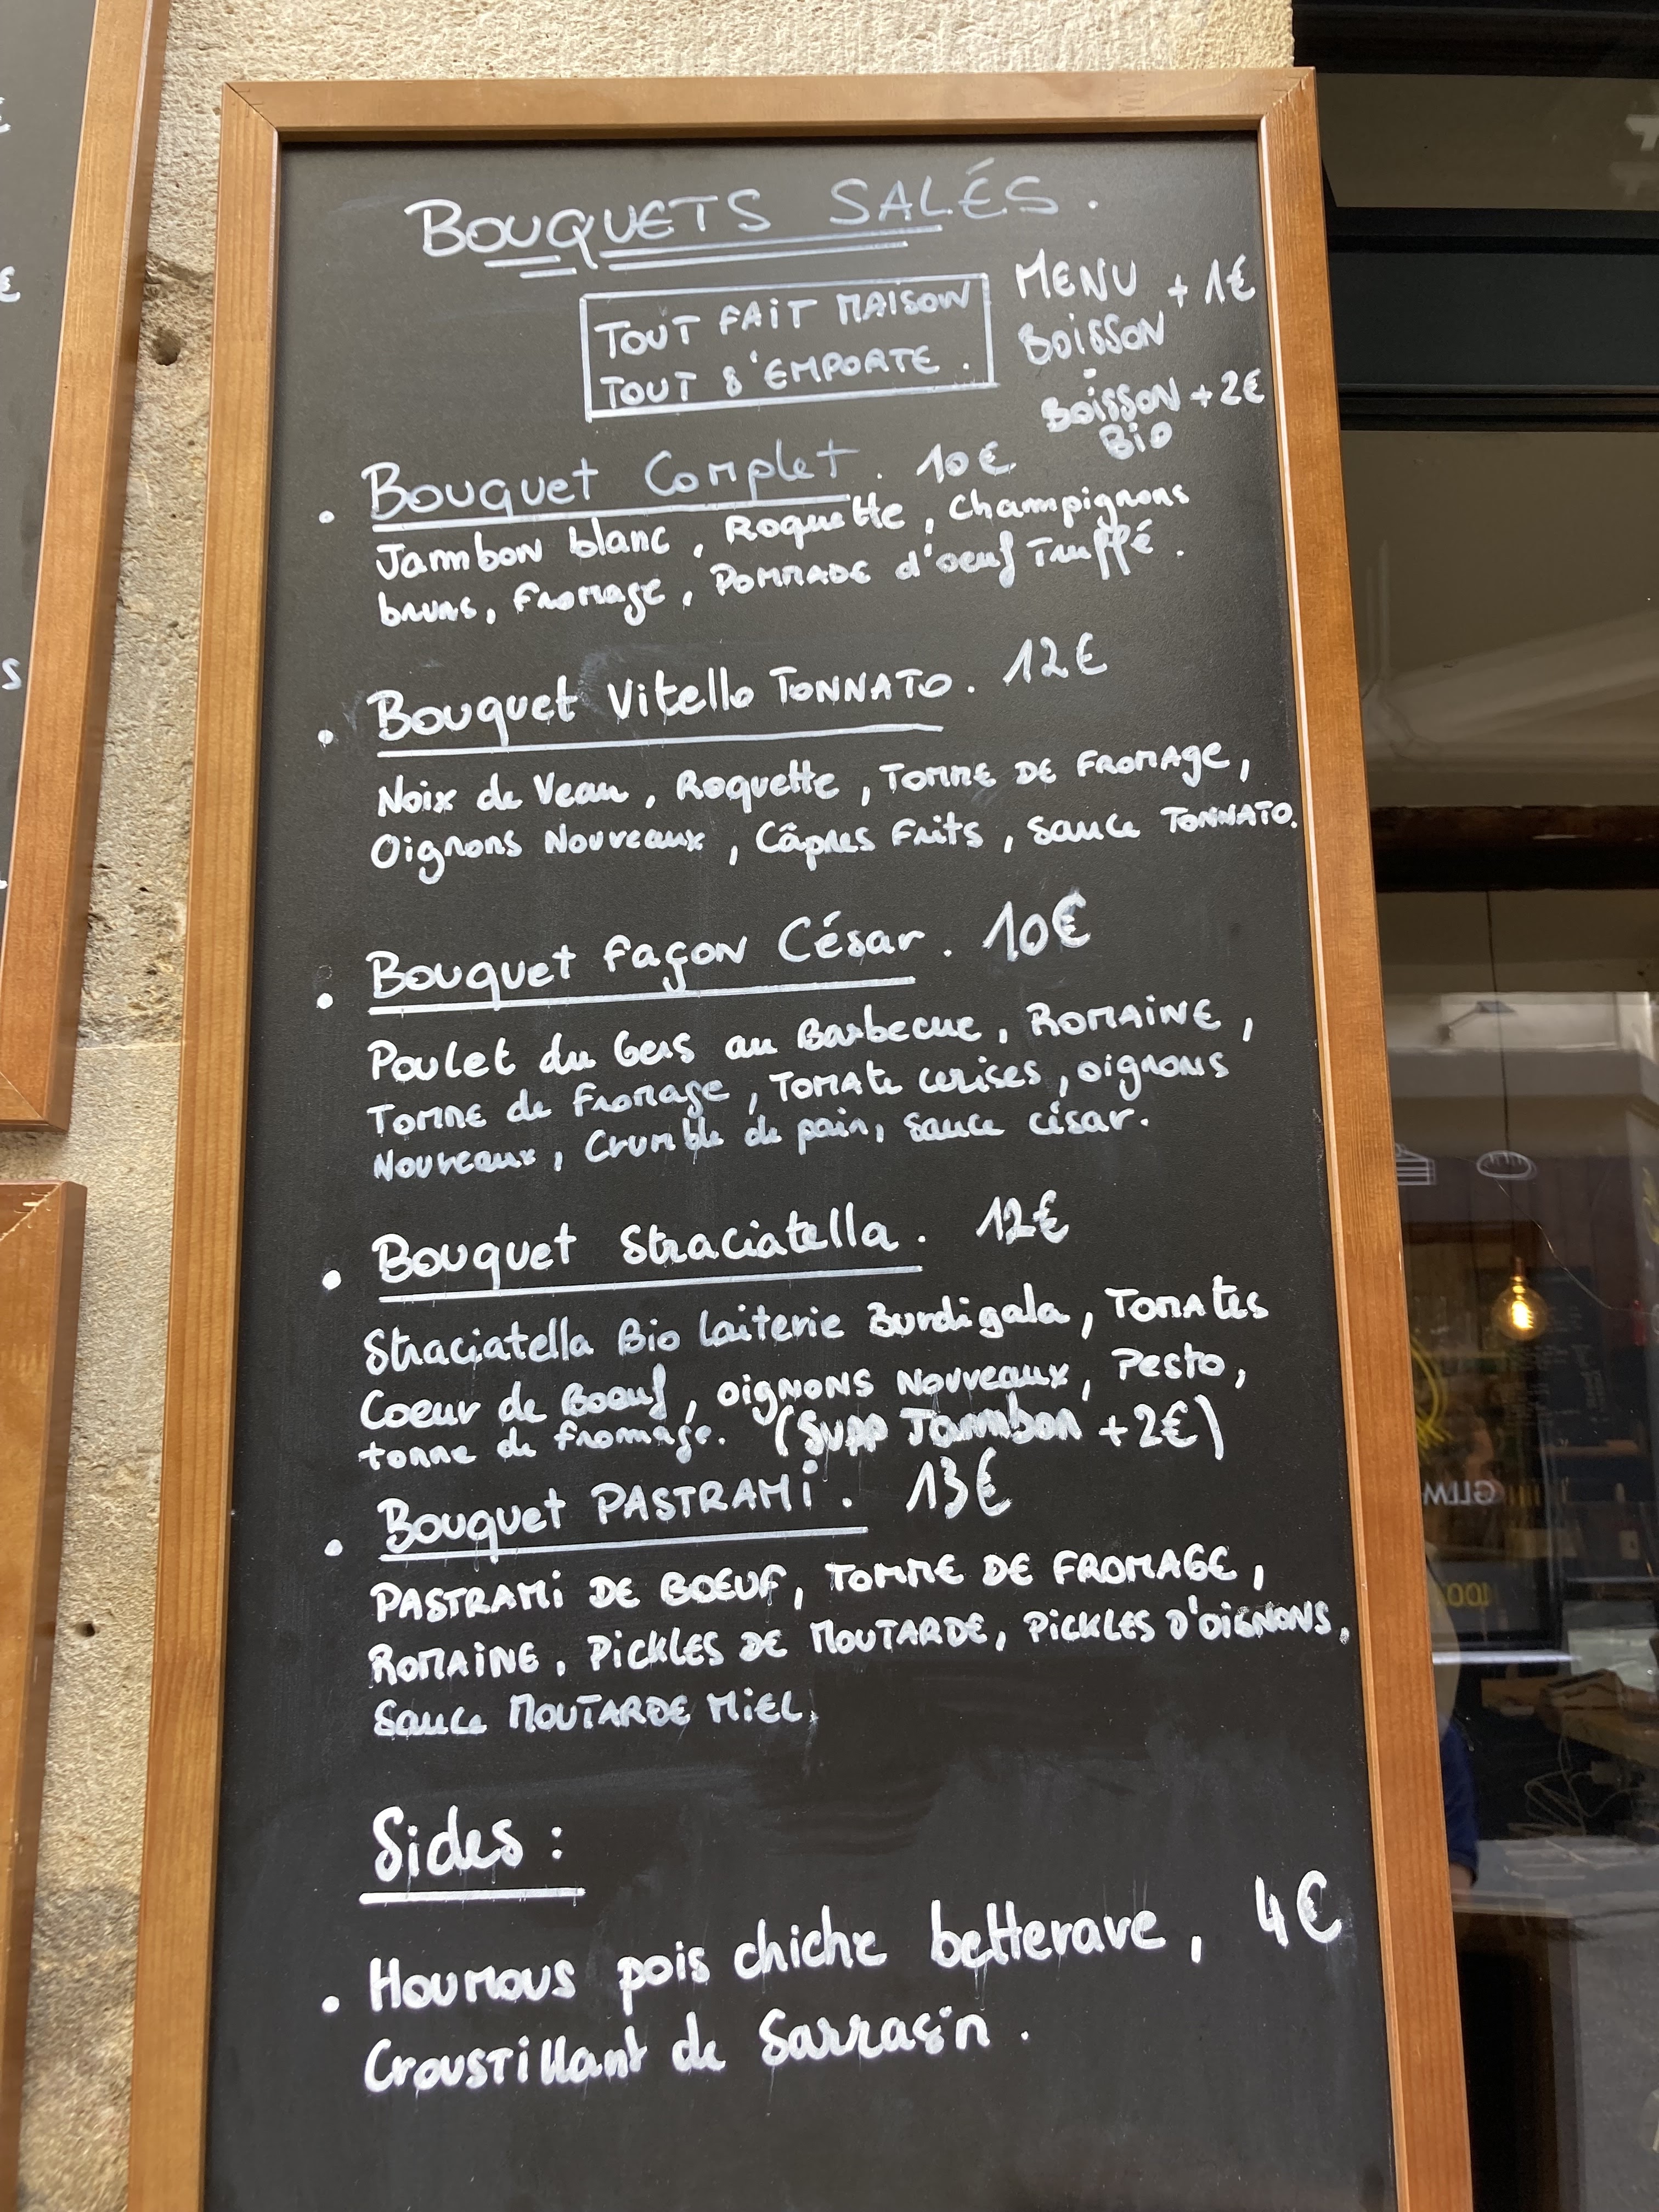 BOUQUETS SALÉS.
TOUT FAIT MAISON
TOUT S'EMPORTE.
MENU + 1€
BOISSON
BOISSON + 2€
BIO
• Bouquet Complet. 10€
Jambon blanc, Roquette, Champignons
bruns, fromage, POMMADE d'oeuf Truffé.
• Bouquet Vitello TONNATO. 12€
Noix de Veau, Roquette, TOMME DE FROMAge,
Oignons Nouveaux, Câpres Frits, sauce TONNATO.
• Bouquet façon César. 10€
Poulet du Gers au Barbecue, ROMAINE,
TOMME de fromage, TOMATE cerises, oignons
Nouveaux, Crumble de pain, sauce césar.
• Bouquet Straciatella. 12€
Straciatella Bio laiterie Burdigala, TOMATES
Coeur de Boeuf, oignons Nouveaux, Pesto,
tomme de fromage. (Supp Jambon +2€)
• Bouquet PASTRAMI. 13€
PASTRAMI DE BOEUF, TOMME DE FROMAGE,
ROMAINE, PICKLES DE MOUTARDE, PICKLES D'OIGNONS,
Sauce MOUTARDE MIEL.
Sides :
• Houmous pois chiche betterave, 4€
Croustillant de Sarrasin.